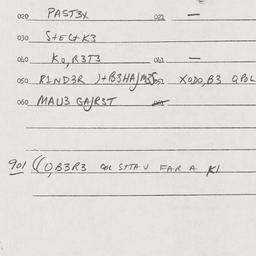 020 PAST3X 021 —
030 S+EC+K3
040 KO,R3T3 041 —
050 R1ND3R )+B3HA/M3S 051 XODO,B3 QPOL
060 MAU3 GA/R3T
901 ((O,B3R3 QOL STTA U FAR A K1